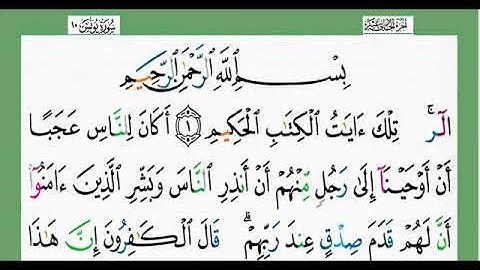 سورة يونس ١٠
الجزء الحادي عشر
بِسْمِ ٱللَّهِ ٱلرَّحْمَٰنِ ٱلرَّحِيمِ
الٓر ۚ تِلْكَ ءَايَٰتُ ٱلْكِتَٰبِ ٱلْحَكِيمِ ١ أَكَانَ لِلنَّاسِ عَجَبًا
أَنْ أَوْحَيْنَآ إِلَىٰ رَجُلٍ مِّنْهُمْ أَنْ أَنذِرِ ٱلنَّاسَ وَبَشِّرِ ٱلَّذِينَ ءَامَنُوٓا۟
أَنَّ لَهُمْ قَدَمَ صِدْقٍ عِندَ رَبِّهِمْ ۗ قَالَ ٱلْكَٰفِرُونَ إِنَّ هَٰذَا